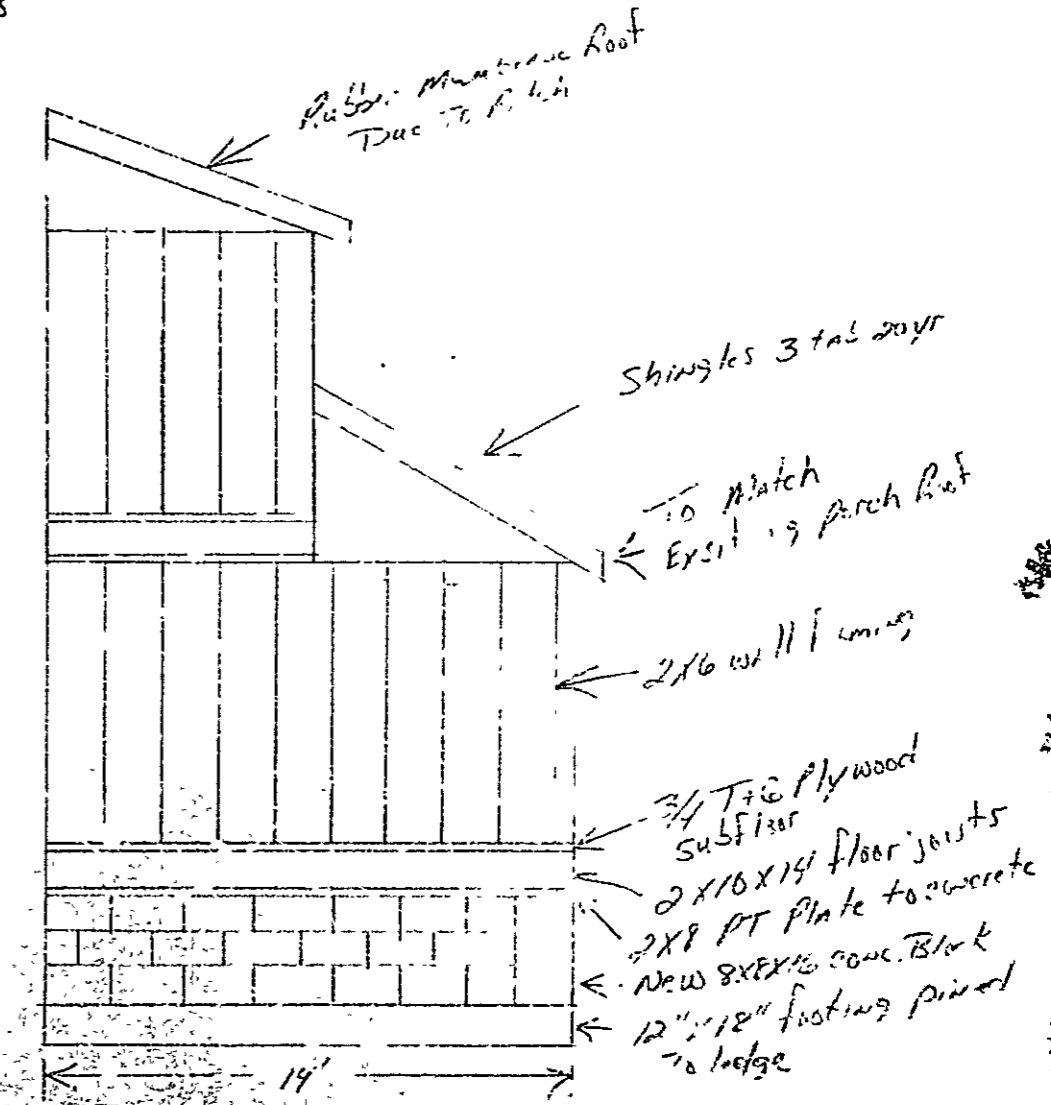 Rubber Membrane Roof
Due To Pitch
Shingles 3 tab 20yr
To Match
Exsiting Porch Roof
2X6 wall framing
3/4 T+G Plywood
subfloor
2X10X14' floor joists
2X8 PT Plate to concrete
New 8X8X16 conc. Block
12" X 18" footing pined
To ledge
14'